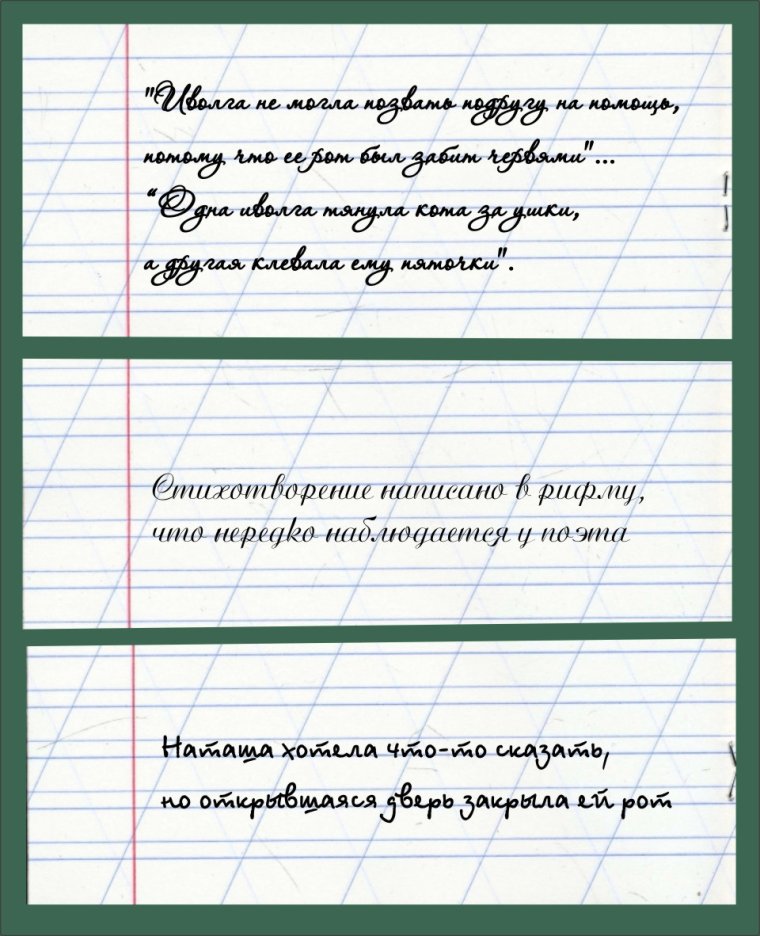 "Иволга не могла позвать подругу на помощь,
потому что ее рот был забит червями"...
“Одна иволга тянула кота за ушки,
а другая клевала ему пяточки".
Стихотворение написано в рифму,
что нередко наблюдается у поэта
Наташа хотела что-то сказать,
но открывшаяся дверь закрыла ей рот